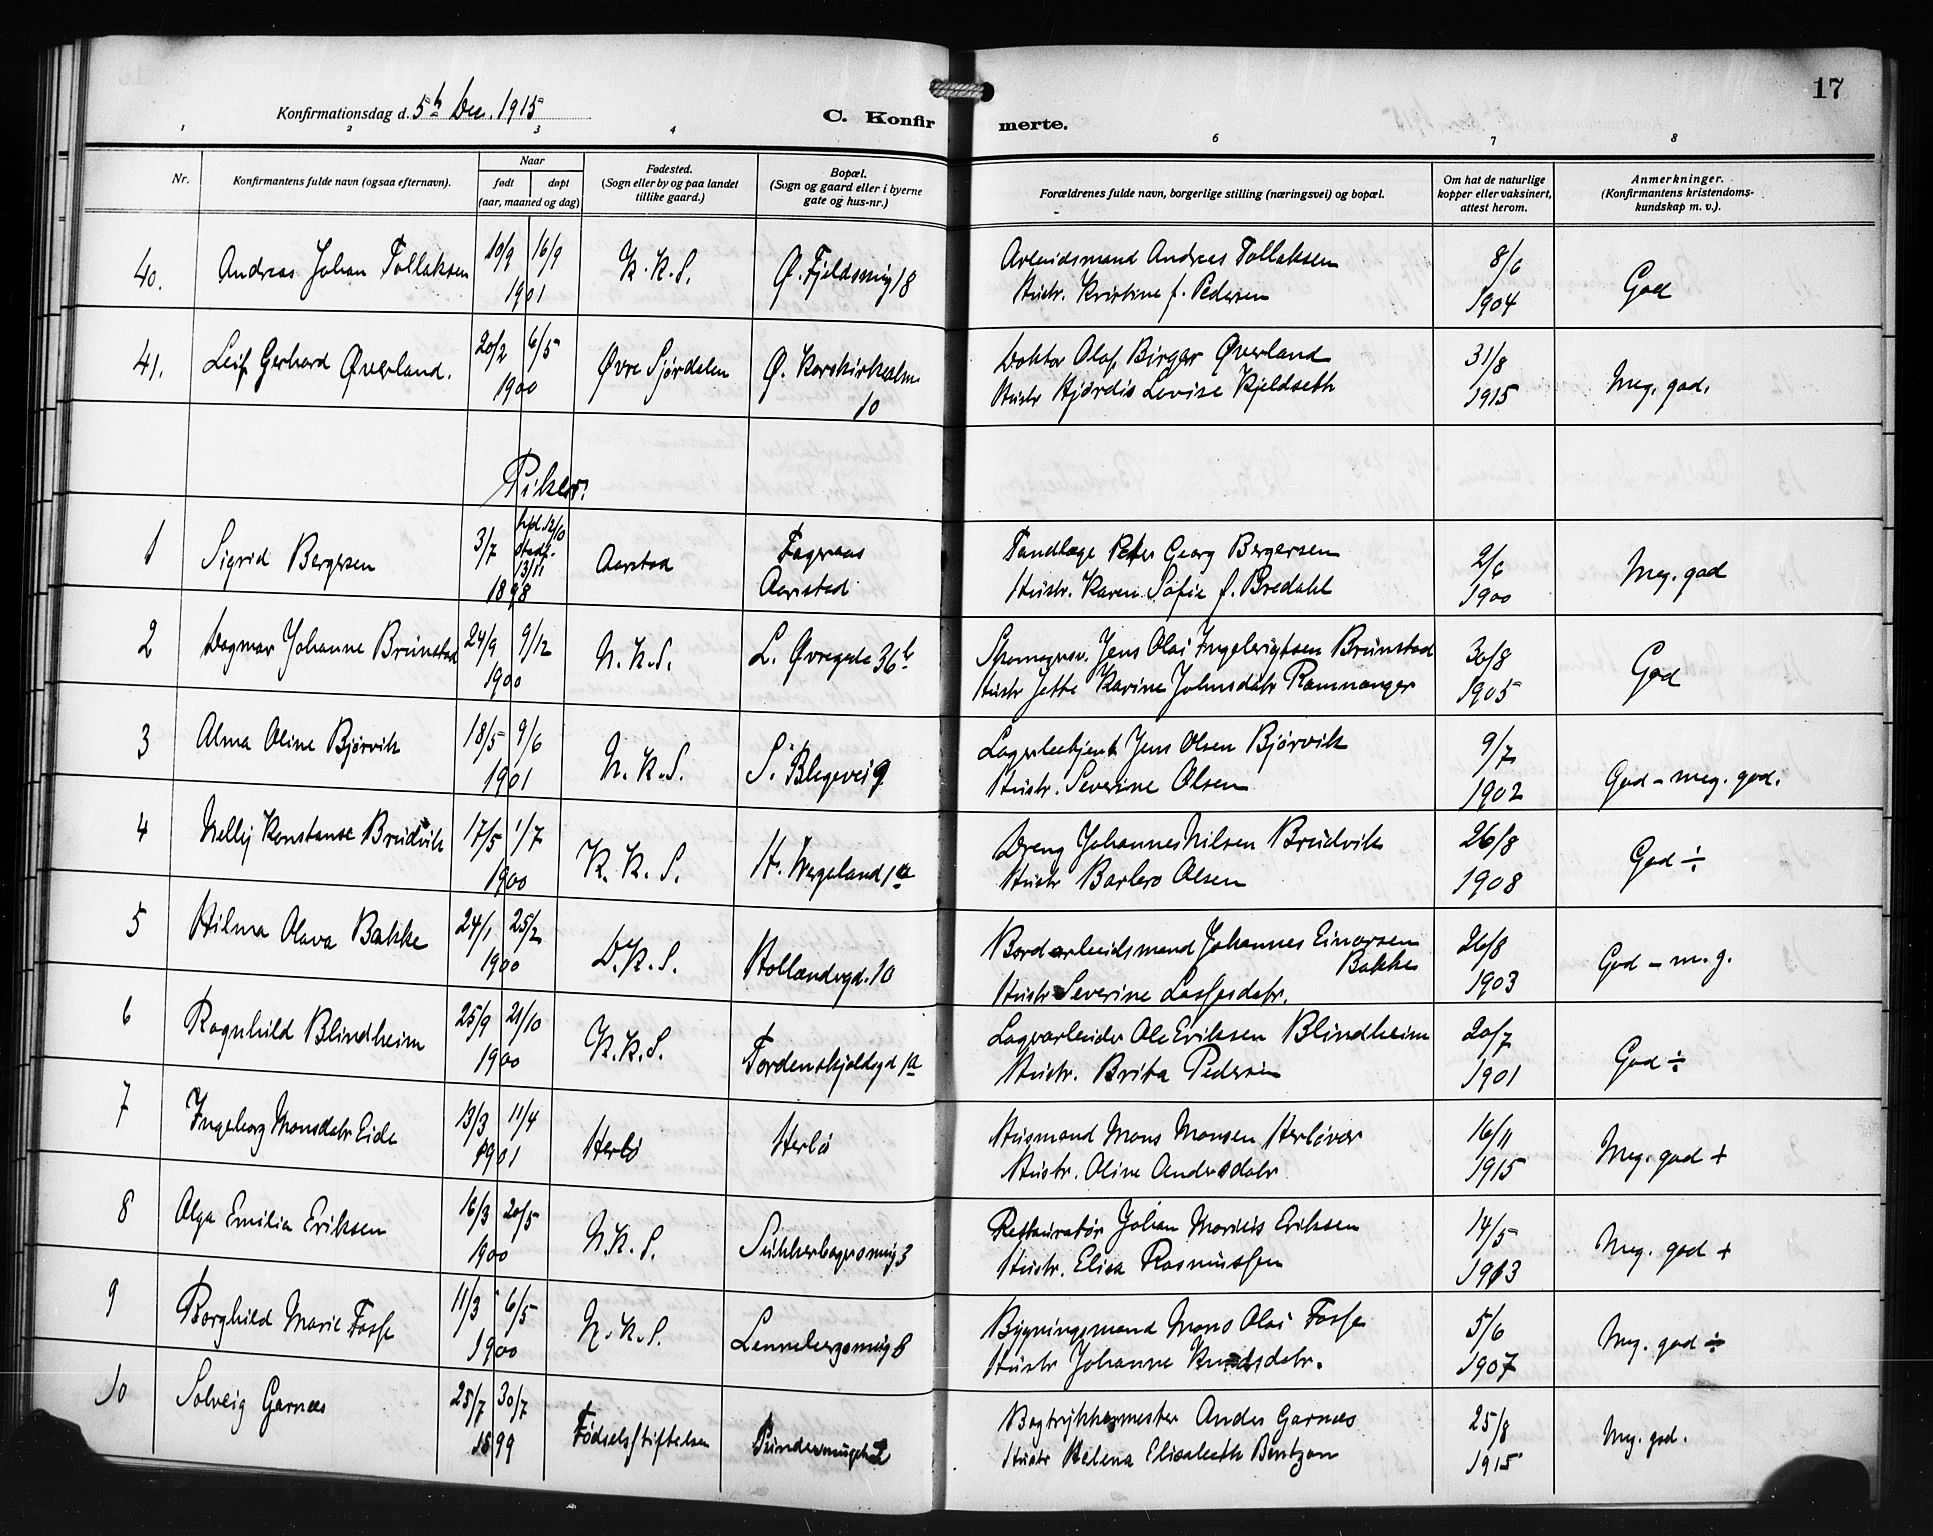 17
Konfirmationsdag d. 5te Dec. 1915
C. Konfirmerte.
1 2 3 4 6 7 8
Nr.
Konfirmantens fulde navn (ogsaa efternavn).
Naar
født døpt
(aar, maaned og dag)
Fødested.
(Sogn eller by og paa landet
tillike gaard.)
Bopæl.
(Sogn og gaard eller i byerne
gate og hus-nr.)
Forældrenes fulde navn, borgerlige stilling (næringsvei) og bopæl.
Om hat de naturlige
kopper eller vaksinert,
attest herom.
Anmerkninger.
(Konfirmantens kristendoms-
kundskap m. v.).
40. Andreas Johan Tollaksen 10/9 16/9 1901 K. K. S. Ø. Fjeldsmug 18
Arbeidsmand Andreas Tollaksen
Hustr. Kristine f. Pedersen
8/6 1904 God
41. Leif Gerhard Øverland. 20/2 6/5 1900 Øvre Sjørdalen Ø. Korskirkealm. 10
Doktor Olaf Birger Øverland
Hustr Hjørdis Lovise Kjeldseth
31/8 1915 Meg. god.
Piker.
1 Sigrid Bergersen 3/7 hjd. 12/10 stadf. 13/11 1898 Aarstad Fageraas Aarstad
Tandlæge Peter Georg Bergersen
Hustr. Karen Sofie f. Bredahl
2/6 1900 Meg. god
2 Dagmar Johanne Brunstad 24/9 9/12 1900 N. K. S. L. Øvregade 36b
Jens Olai Ingebrigtsen Brunstad
Hustr Jette Karine Johnsdatr Ramnanger
30/8 1905 God
3 Alma Oline Bjørvik 18/5 9/6 1901 N. K. S. S. Blegevei 9
Lagerbetjent Jens Olsen Bjørvik
Hustr. Severine Olsen
9/7 1902 God - meg. god.
4 Nelly Konstanse Brudvik 17/5 1/7 1900 K. K. S. H. Wergeland 1a
Dreng Johannes Nilsen Brudvik
Hustr Barbro Olsen
26/8 1908 God ÷
5 Hilma Olava Bakke 24/1 25/2 1900 D. K. S. Hollændergd. 10
Bordarbeidsmand Johannes Einarsen Bakke
Hustr Severine Lassesdatr.
26/8 1903 God - m. g.
6 Ragnhild Blindheim 25/9 21/10 1900 N. K. S. Tordenskjoldsgd 1a
Lagerarbeider Ole Eriksen Blindheim
Hustr. Brita Pedersen
20/7 1901 God ÷
7 Ingeborg Monsdatr Eide 13/3 11/4 1901 Herlø Herlø
Husmand Mons Monsen Herløvær
Hustr. Oline Andersdatr
16/11 1915 Meg. god +
8 Olga Emilia Eriksen 16/3 20/5 1900 N. K. S. Sukkerbagersmug 3
Restauratør Johan Mariuis Eriksen
Hustr. Elisa Rasmussen
14/5 1913 Meg. god +
9 Borghild Marie Fosse 11/3 6/5 1900 N. K. S. Lennebergsmug 8
Bygningsmand Mons Olai Fosse
Hustr Johanne Knudsdatr.
5/6 1907 Meg. god ÷
10 Solveig Garnæs 25/7 30/7 1899 Fødselsstiftelsen
Bogtrykkermester Anders Garnæs
Hustr Helena Elisabeth Bentzon
25/8 1915 Meg. god.